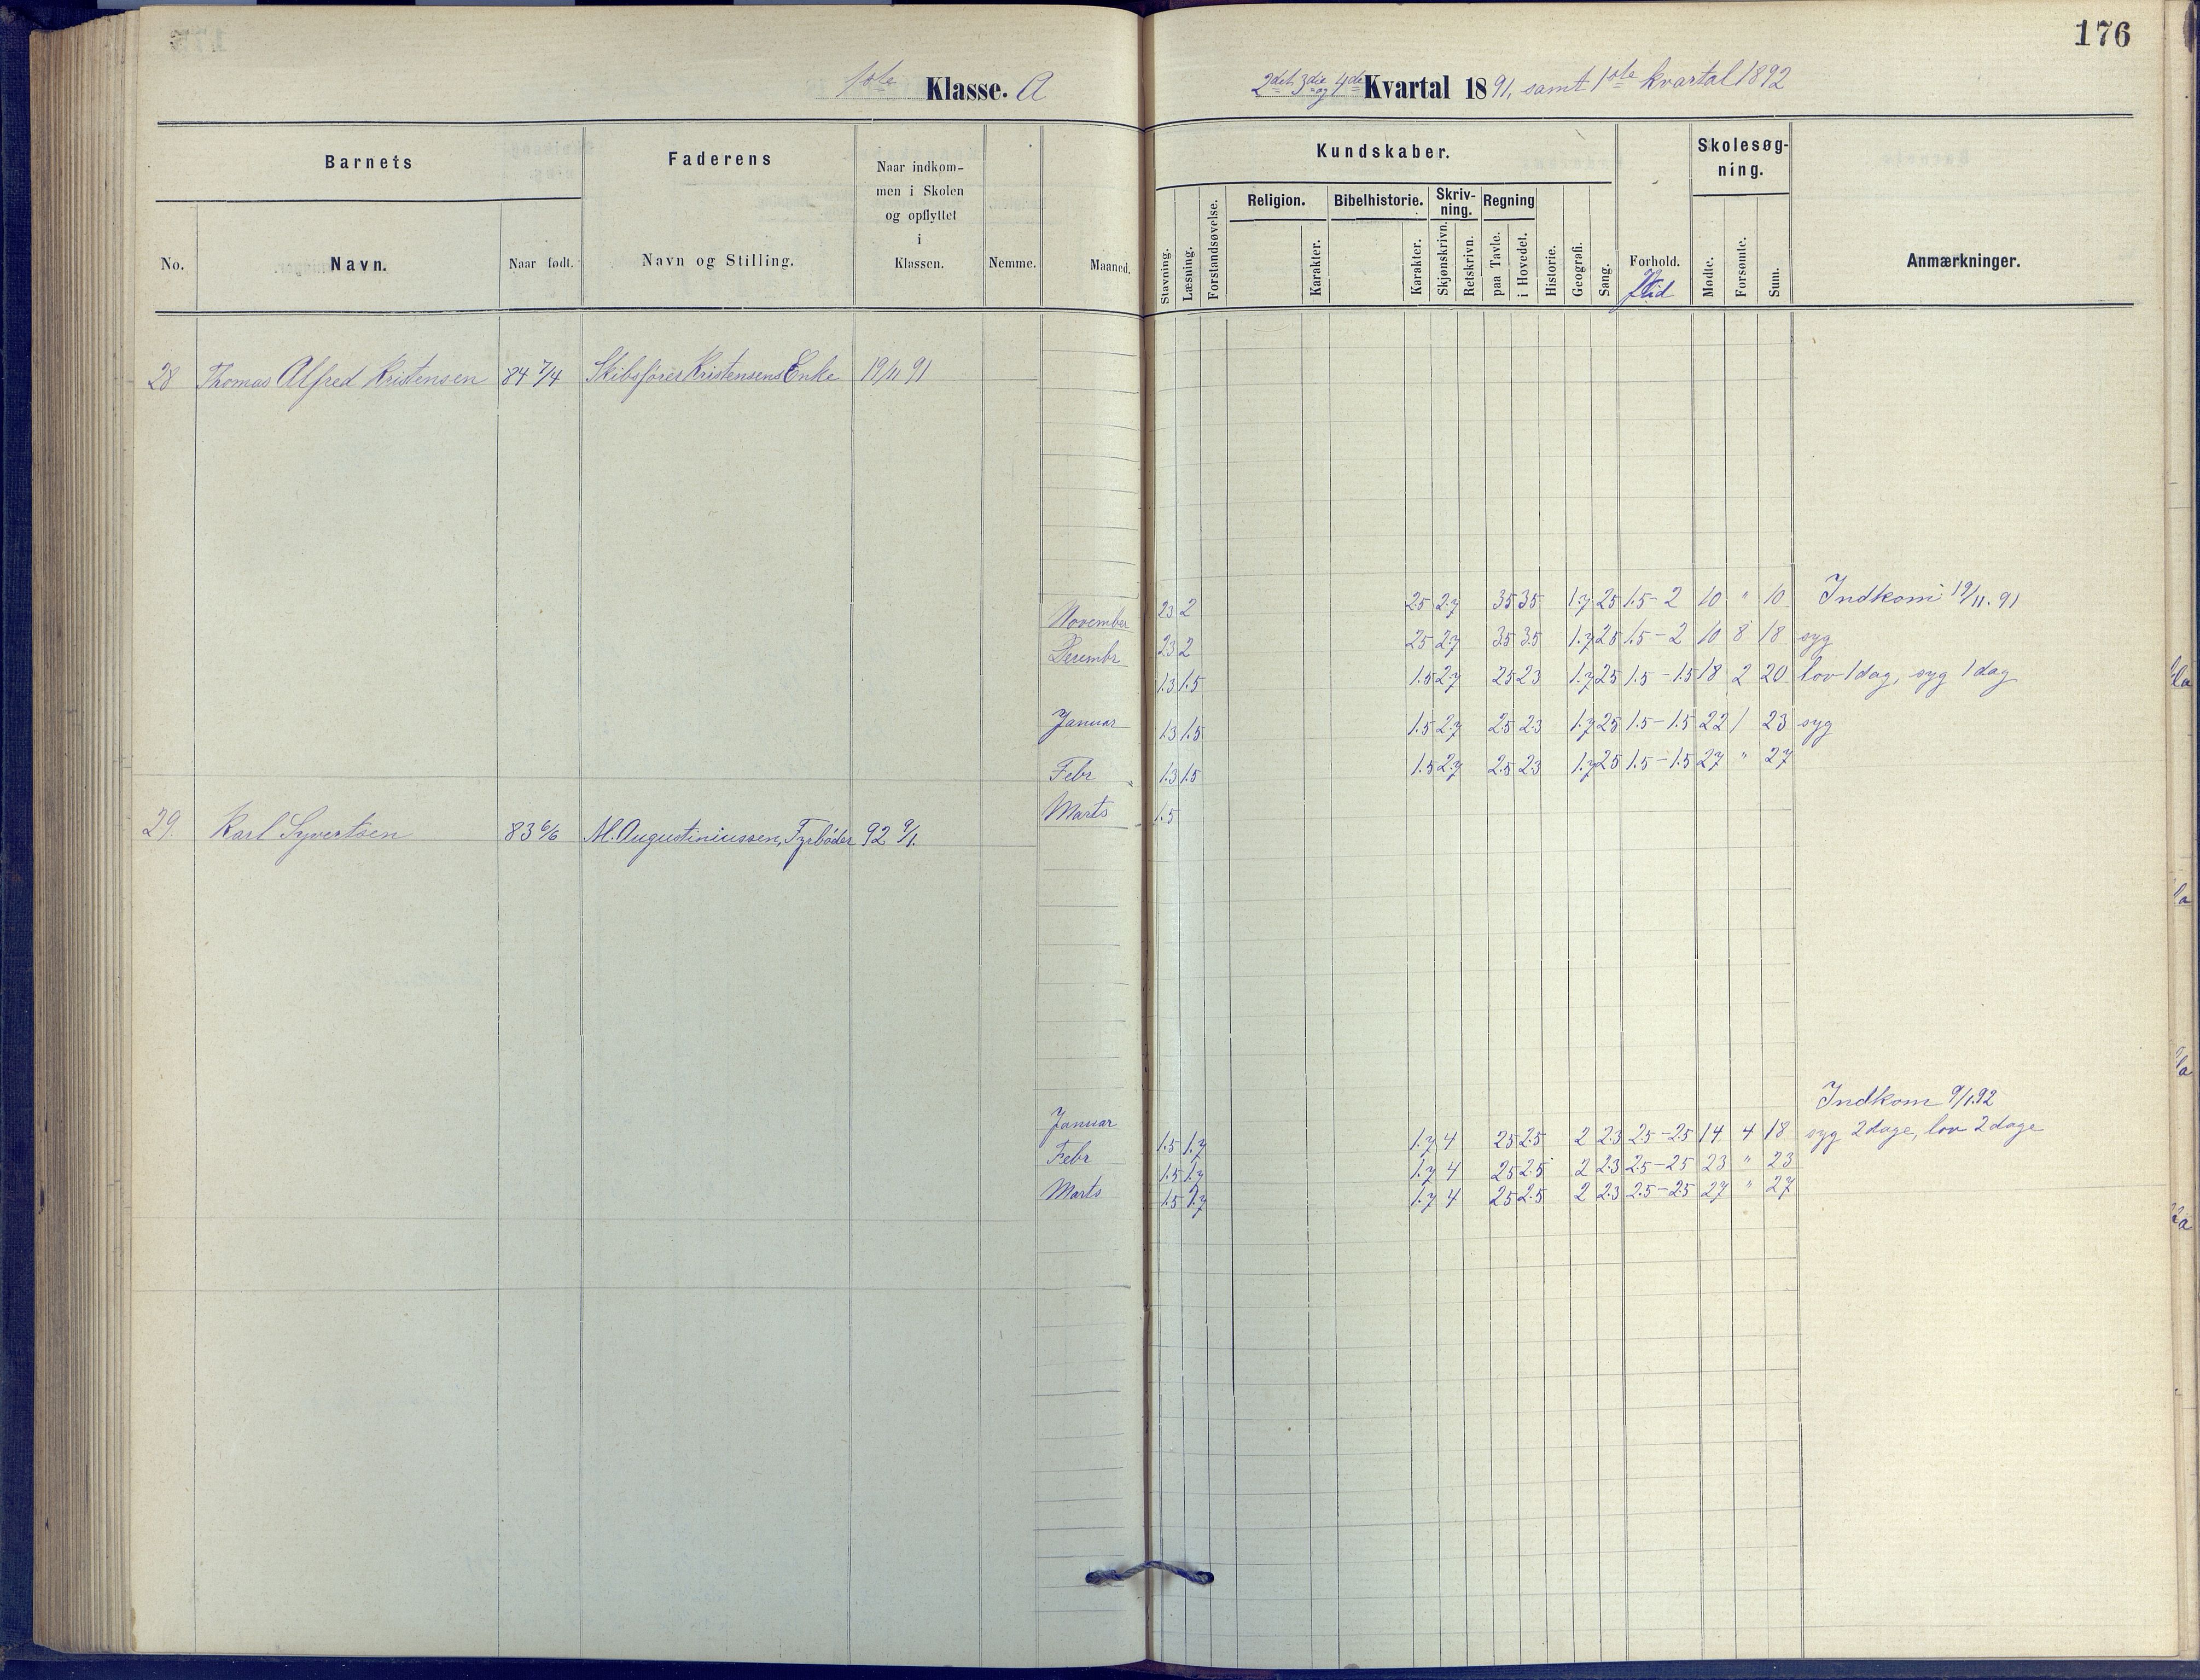 176
1ste Klasse. A
2det 3die og 4de Kvartal 1891, samt 1ste kvartal 1892
Barnets
Faderens
Naar indkom-
men i Skolen
og opflyttet
i
Klassen.
No.
Navn.
Naar født.
Navn og Stilling.
Nemme.
Maaned.
Kundskaber.
Skolesøg-
ning.
Religion.
Bibelhistorie.
Skriv-
ning.
Regning
Stavning.
Læsning.
Forstandsøvelse.
Karakter.
Karakter.
Skjønskrivn.
Retskrivn.
paa Tavle.
i Hovedet.
Historie.
Geografi.
Sang.
Forhold.
Flid
Mødte.
Forsømte.
Sum.
Anmærkninger.
28 Thomas Alfred Kristensen 84 7/4 Skibsfører Kristensens Enke 19/11 91
November 23 2 25 2.7 35 35 1.7 25 1.5 - 2 10 " 10 Indkom 19/11. 91
Decembr 23 2 25 2.7 35 3.5 1.7 25 1.5 - 2 10 8 18 syg
Januar 1.3 1.5 1.5 2.7 25 23 1.7 25 1.5 - 1.5 18 2 20 lov 1 dag, syg 1 dag
Febr 1.3 1.5 1.5 2.7 25 23 1.7 25 1.5 - 1.5 22 1 23 syg
Marts 1.3 1.5 1.5 2.7 2.5 23 1.7 25 1.5 - 1.5 27 " 27
1.5
29. Karl Syvertsen 83 6/6 M. Augustiniussen, Fyrbøder 92 9/1.
Indkom 9/1.92
Januar 1.5 1.7 1.7 4 25 2.5 2 2.3 25 - 25 14 4 18 syg 2 dage, lov 2 dage
Febr 1.5 1.7 1.7 4 25 2.5 2 2.3 2.5 - 25 23 " 23
Marts 1.5 1.7 1.7 4 25 2.5 2 2.3 2.5 - 2.5 27 " 27